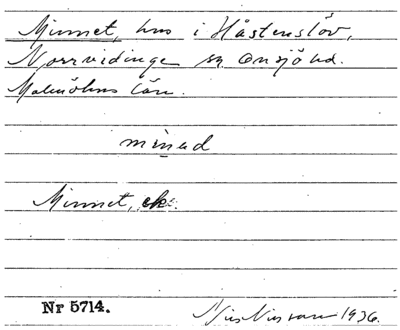 Minnet, hus i Håstenslöv,
Norrvidinge sn Onsjö hd.
Malmöhus län.
minəd
Minnet, ek.
Nr 5714.
Nils Nilsson 1936.